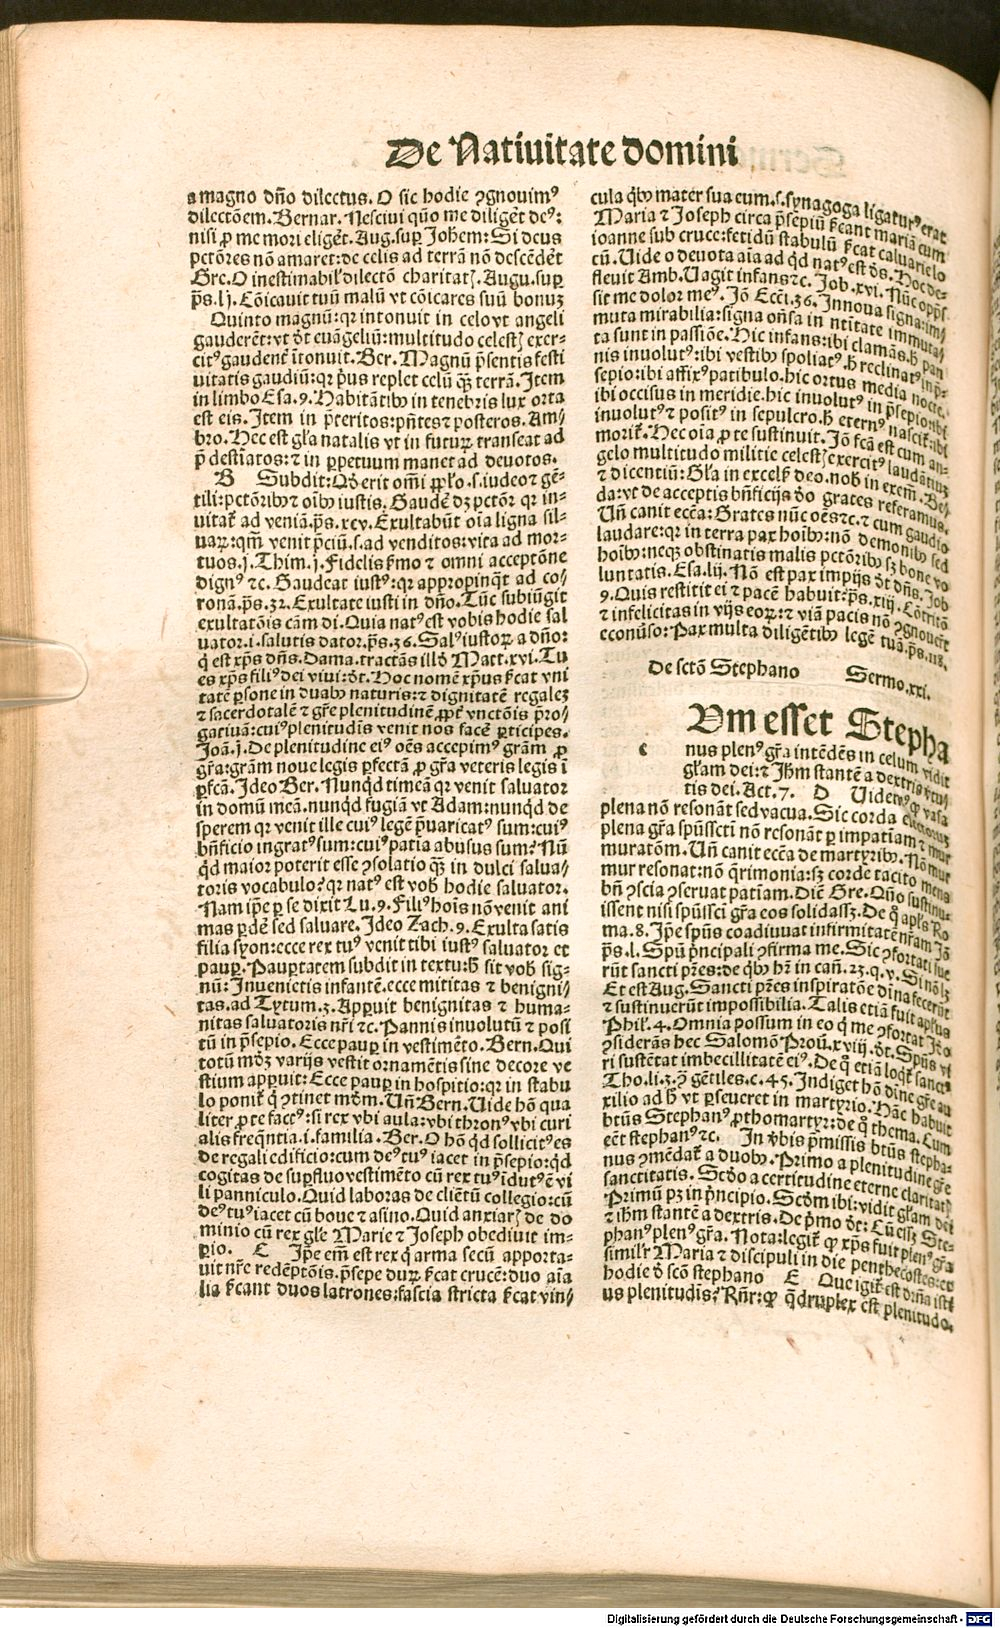 De Natiuitate domini
a magno dño dilectus. O sic hodie ꝯgnouimꝰ
dilectõem. Bernar. Nesciui quõ me diligẽt deꝰ:
nisi ꝓ me mori eligẽt. Aug. suꝑ Johẽm: Si deus
pctõres nõ amaret: de celis ad terrã nõ descẽdẽt
Gre. O inestimabil' dilectõ charitatꝭ. Augu. suꝑ
p̃s. lj. Cõicauit tuũ malũ vt cõicares suũ bonuꝫ
Quinto magnũ: qr intonuit in celo vt angeli
gauderẽt: vt dt̃ euãgeliũ: multitudo celestꝭ exer⸗
citꝰ gaudenẽ ĩtonuit. Ber. Magnũ p̃sentis festi
uitatis gaudiũ: qr p̃us replet celũ qꝫ terrã. Item
in limbo Esa. 9. Habitãtibꝰ in tenebris lux orta
est eis. Item in p̃teritos: pñtes ⁊ posteros. Am⸗
bro. Hec est gl'a natalis vt in futuꝝ transeat ad
p̃destĩatos: ⁊ in ꝑpetuum manet ad deuotos.
B Subdit: Qđ erit omĩ ꝓp̃lo. s. iudeo ⁊ gẽ⸗
tili: pctõribꝰ ⁊ oĩbꝰ iustis. Gaudẽ dꝫ pctõr qr in⸗
uitat̃ ad veniã. p̃s. xcv. Exultabũt oĩa ligna sil⸗
uaꝝ: qm̃ venit p̃ciũ. s. ad venditos: vita ad mor⸗
tuos. j. Thim. j. Fidelis ẜmo ⁊ omni acceptõne
dignꝰ ⁊c. Gaudeat iustꝰ: qr appropinq̃t ad co⸗
ronã. p̃s. 32. Exultate iusti in dño. Tũc subiũgit
exultatõis cãm dĩ. Quia natꝰ est vobis hodie sal
uator. i. salutis dator. p̃s. 36. Salꝰ iustoꝝ a dño:
q̃ est xp̃s dñs. Dama. tractãs illđ Matt. xvi. Tu
es xp̃s filiꝰ dei viui: dt̃. Hoc nomẽ xp̃us ẜcat vni
tatẽ ꝑsone in duabꝰ naturis: ⁊ dignitatẽ regaleꝫ
⁊ sacerdotalẽ ⁊ gr̃e plenitudinẽ ꝓpt̃ vnctõis p̃ro⸗
gatiuã: cuiꝰ plenitudis venit nos facẽ ꝑticipes.
Joã. j. De plenitudine eiꝰ oẽs accepimꝰ grãm ꝓ
gr̃a: grãm noue legis ꝑfectã ꝓ gr̃a veteris legis ĩ
ꝑfcã. Ideo Ber. Nunq̃d timeã qr venit saluator
in domũ meã. nunq̃d fugiã vt Adam: nunq̃d de
sperem qr venit ille cuiꝰ legẽ p̃uaricatꝰ sum: cuiꝰ
bñficio ingratꝰ sum: cuiꝰ patia abusus sum? Nũ
q̃d maior poterit esse ꝯsolatio qꝫ in dulci salua⸗
toris vocabulo? qr natꝰ est vob̃ hodie saluator.
Nam ip̃e ꝑ se dixit Lu. 9. Filiꝰ hoĩs nõ venit ani
mas ꝑdẽ sed saluare. Ideo Zach. 9. Exulta satis
filia syon: ecce rex tuꝰ venit tibi iustꝰ saluator et
pauꝑ. Pauꝑtatem subdit in textu: h̃ sit vob̃ sig⸗
nũ: Inuenietis infantẽ. ecce mititas ⁊ benigni⸗
tas. ad Tytum. 3. Apꝑuit benignitas ⁊ huma⸗
nitas saluatoris nr̃i ⁊c. Pannis inuolutũ ⁊ posi
tũ in p̃sepio. Ecce pauꝑ in vestimẽto. Bern. Qui
totũ mđꝫ varijs vestit ornamẽtis sine decore ve
stium apꝑuit: Ecce pauꝑ in hospitio: qr in stabu
lo ponit̃ q̃ ꝯtinet mđm. Uñ Bern. Uide hõ qua
liter ꝓ te factꝰ: si rex vbi aula: vbi thronꝰ vbi curi
alis freq̃ntia. i. familia. Ber. O hõ q̃d sollicitꝰ es
de regali edificio: cum deꝰ tuꝰ iacet in p̃sepio: q̃d
cogitas de suꝑfluo vestimẽto cũ rex tuꝰ idutꝰ ẽ vi
li panniculo. Quid laboras de cliẽtũ collegio: cũ
deꝰ tuꝰ iacet cũ boue ⁊ asino. Quid anxiarꝭ de do
minio cũ rex gl'e Marie ⁊ Joseph obediuit im⸗
ꝑio. C Ip̃e em̃ est rex q̃ arma secũ apporta⸗
uit nr̃e redẽptõis. p̃sepe duꝝ ẜcat crucẽ: duo aĩa
lia ẜcant duos latrones: fascia stricta ẜcat vin⸗
cula q̃bꝰ mater sua eum. s. synagoga ligaturꝰ erat
Maria ⁊ Joseph circa p̃sepiũ ẜcant mariã cum
ioanne sub cruce: fetidũ stabulũ ẜcat caluarie lo
cũ. Uide o deuota aĩa ad q̃d natꝰ est dñs. Hoc de⸗
fleuit Amb. Uagit infans ⁊c. Job. xvi. Nũc opp̃s
sit me dolor meꝰ. Jõ Eccĩ. 36. Innoua signa: im⸗
muta mirabilia: signa oñsa in ntĩtate immuta⸗
ta sunt in passiõe. Hic infans: ibi clamãs. h̃ pan
nis inuolutꝰ: ibi vestibꝰ spoliatꝰ. h̃ reclinatꝰ in p̃⸗
sepio: ibi affixꝰ patibulo. hic ortus media nocte.
ibi occisus in meridie. hic inuolutꝰ in p̃sepio: ibi
inuolutꝰ ⁊ positꝰ in sepulcro. h̃ eternꝰ nascit̃: ibi
morit̃. Hec oĩa ꝓ te sustinuit. Jõ fcã est cum an⸗
gelo multitudo militie celestꝭ exercitꝰ laudãtiuꝫ
⁊ dicentiũ: Gl'a in excels̃ deo. nob̃ in exem̃. Be⸗
da: vt de acceptis bñficijs đo grates referamus.
Uñ canit ecc̃a: Grates nũc oẽs ⁊c. ⁊ cum gaudio
laudare: qr in terra pax hoĩbꝰ: nõ demonibꝰ sed
hoĩbꝰ: neqꝫ obstinatis malis pctõribꝰ sꝫ bone vo
luntatis. Esa. lij. Nõ est pax impijs dt̃ dñs. Job
9. Quis restitit ei ⁊ pacẽ habuit: p̃s. xiij. Cõtritõ
⁊ infelicitas in vijs eoꝝ: ⁊ viã pacis nõ ꝯgnouert̃
econũso: Pax multa diligẽtibꝰ legẽ tuã. p̃s. 118.
De sctõ Stephano Sermo. xxi.
Um esset Stepha
c nus plenꝰ gr̃a intẽdẽs in celum vidit
gl'am dei: ⁊ Jh̃m stantẽ a dextris vtu⸗
tis dei. Act. 7. D Uidetꝰ ꝙ vasa
plena nõ resonãt sed vacua. Sic corda electoruꝫ
plena gr̃a sp̃ussctĩ nõ resonãt ꝑ impatĩam ⁊ mur
muratõm. Uñ canit ecc̃a de martyribꝰ. Nõ mur
mur resonat: nõ q̃rimonia: sꝫ corde tacito mens
bñ ꝯscia ꝯseruat patĩam. Diẽ Gre. Quõ sustinu⸗
issent nisi sp̃ussci gr̃a eos solidassꝫ. De q̃ apl's Ro
ma. 8. Ip̃e sp̃us coadiuuat infirmitatẽ nr̃am Jõ
p̃s. l. Sp̃ũ p̃ncipali ꝯfirma me. Sic ꝯfortati fue
rũt sancti pr̃es: de q̃bꝰ hr̃ in cañ. 23. q. v. Si nõ lꝫ
Et est Aug. Sancti pr̃es inspiratõe diĩna fecerũt
⁊ sustinuerũt impossibilia. Talis etiã fuit apl'us
Phil'. 4. Omnia possum in eo q̃ me ꝯfortat Jtõ
ꝯsiderãs hec Salomõ Prou. xviij. dt̃. Sp̃us vi
ri sustẽtat imbecillitatẽ eiꝰ. De q̃ etiã loq̃t̃ sanctꝰ
Tho. li. 3. ꝯ̃ gẽtiles. c. 45. Indiget hõ diĩne gr̃e au
xilio ad h̃ vt ꝑseueret in martyrio. Hãc habuit
btũs Stephanꝰ ꝓthomartyr: de q̃ thema. Cum
eẽt stephanꝰ ⁊c. In ṽbis p̃missis btũs stepha⸗
nus ꝯmẽdat̃ a duobꝰ. Primo a plenitudine gr̃e
sanctitatis. Scđo a certitudine eterne claritatꝭ
Primũ pꝫ in p̃ncipio. Scđm ibi: vidit gl'am dei
⁊ ih̃m stantẽ a dextris. De p̃mo dt̃: Cũ eẽt Ste⸗
phanꝰ plenꝰ gr̃a. Nota: legit̃ ꝙ xp̃s fuit plenꝰ gr̃a
silr̃ Maria ⁊ discipuli in die penthecostes: et
hodie đ scõ stephano E Que igit̃ est dr̃ña isti
us plenitudis? Rñr: ꝙ q̃druplex est plenitudo.
Digitalisierung gefördert durch die Deutsche Forschungsgemeinschaft - DFG